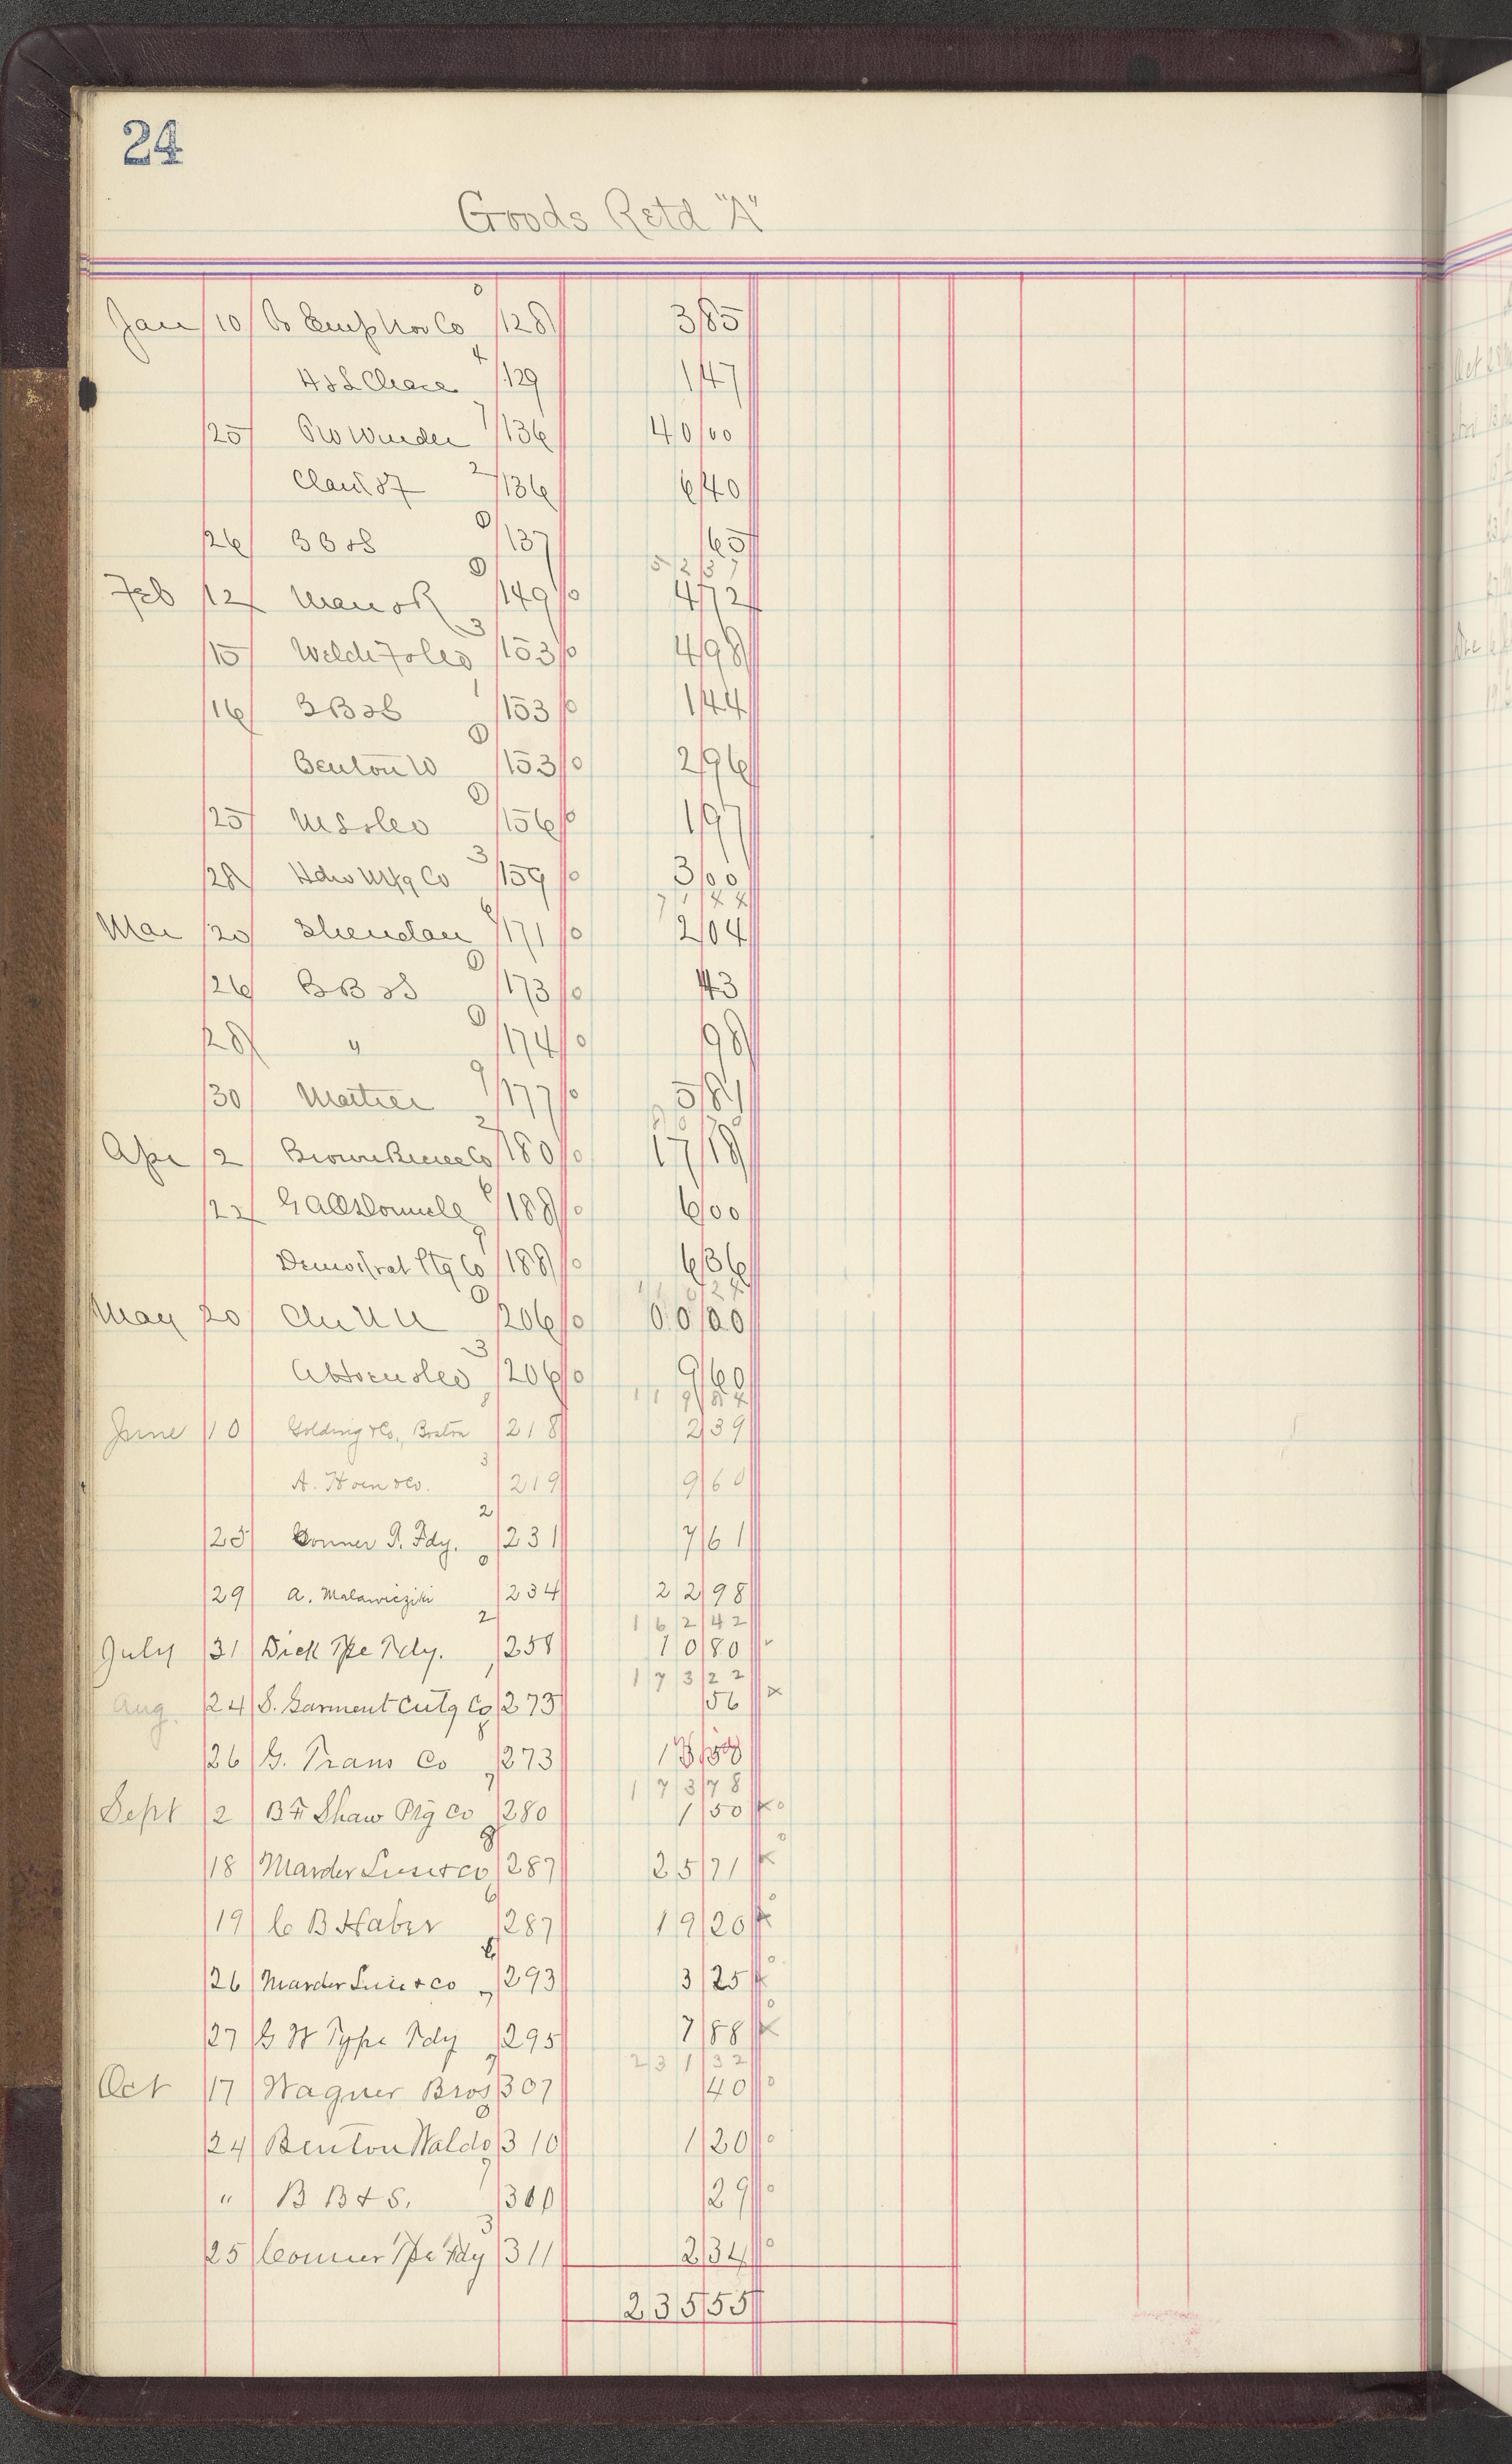 24
Goods Retd "A"
Jan 10 Co 128 3 85
H & L Chace 4 129 1 47
25 7 136 40 00
2 136 6 40
26 B B & S 1 137 65
52 37
Feb 12 Man & R 1 149 0 4 72
15 Weld & Co 3 153 0 4 98
16 B B & S 1 153 0 1 44
Benton W 1 153 0 2 96
25 1 156 0 1 97
28 Hdw Mfg Co 3 159 0 3 00
71 44
Mar 20 Sheridan 6 171 0 2 04
26 B B & S 1 173 0 43
28 " 1 174 0 98
30 9 177 0 5 81
Apr 2 Brown Co 2 180 0 17 18
22 G A O'Donnell 6 188 0 6 00
Democrat Ptg Co 9 188 0 6 36
May 20 1 206 0 00 00
A Hoen & Co 3 206 0 9 60
June 10 Golding & Co., Boston 8 218 2 39
A. Hoen & Co. 3 219 9 60
25 Conner T. Fdy. 2 231 7 61
29 A. 0 234 22 98
162 42
July 31 Dick Tpe Fdy. 2 258 10 80
173 22
Aug. 24 S. Garment Cutg Co 273 56 x
26 G. Trans Co 8 273
173 78
Sept 2 B F Shaw Ptg Co 7 280 1 50 x o
18 Marder Luse & Co 8 287 25 71 x o
19 C B Haber 6 287 19 20 x o
26 Marder Luse & Co 8 293 3 25 x o
27 G W Type Fdy 7 295 7 88 x o
231 32
Oct 17 Wagner Bros 7 307 40 o
24 Benton Waldo 0 310 1 20 o
" B B & S. 7 310 29 o
25 Conner Tpe Fdy 3 311 2 34 o
235 55